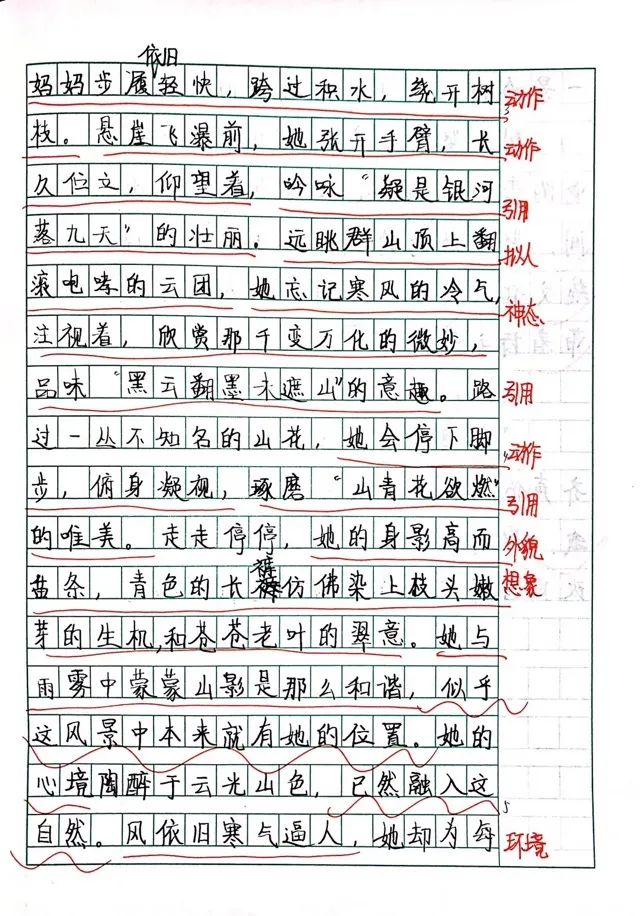 依旧
妈妈步履轻快，跨过积水，绕开树 动作
枝。悬崖飞瀑前，她张开手臂，长 动作
久伫立，仰望着，吟咏“疑是银河 引用
落九天”的壮丽。远眺群山顶上翻 拟人
滚咆哮的云团，她忘记寒风的冷气， 神态
注视着，欣赏那千变万化的微妙，
品味“黑云翻墨未遮山”的意趣。路 引用
过一丛不知名的山花，她会停下脚 动作
步，俯身凝视，琢磨“山青花欲燃” 引用
的唯美。走走停停，她的身影高而 外貌
苗条，青色的长裤仿佛染上枝头嫩 想象
芽的生机，和苍苍老叶的翠意。她与
雨雾中蒙蒙山影是那么和谐，似乎
这风景中本来就有她的位置。她的
心境陶醉于云光山色，已然融入这
自然。风依旧寒气逼人，她却为每 环境